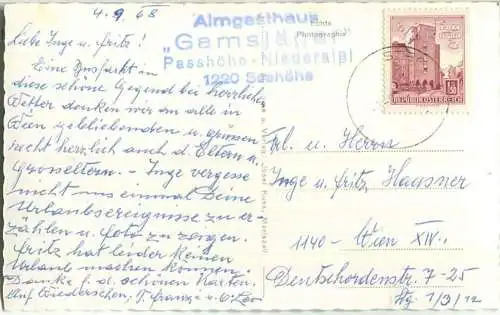 4.9.68
Almgasthaus
„Gamsjäger"
Passhöhe-Niederalpl
1220 Seehöhe
Echte
Photographie
REPUBLIK ÖSTERREICH
Liebe Inge u. Fritz!
Eine Ausfahrt in
diese schöne Gegend bei herrlichem
Wetter denken wir an alle in
Wien gebliebenden u. grüssen
recht herzlich auch d. Eltern u.
Grosseltern. - Inge vergesse
nicht uns einmal Deine
Urlaubserzeugnisse zu er-
zählen u. Foto zu zeigen.
Fritz hat leider keinen
Urlaub machen können.
Danke f. d. schönen Karten.
Auf Wiedersehen,
Frl. u. Herrn
Inge u. Fritz Haasner
1140 - Wien XIV.
Deutschordenstr. 7-25
Stg. 1/3/12